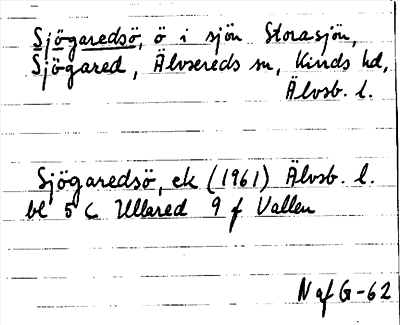 Sjögaredsö, ö i sjön Storasjön,
Sjögared, Älvsereds sn, Kinds hd,
Älvsb. l.
Sjögaredsö, ek (1961) Älvsb. l.
bl 5 C Ullared 9 f Vallen
N af G-62